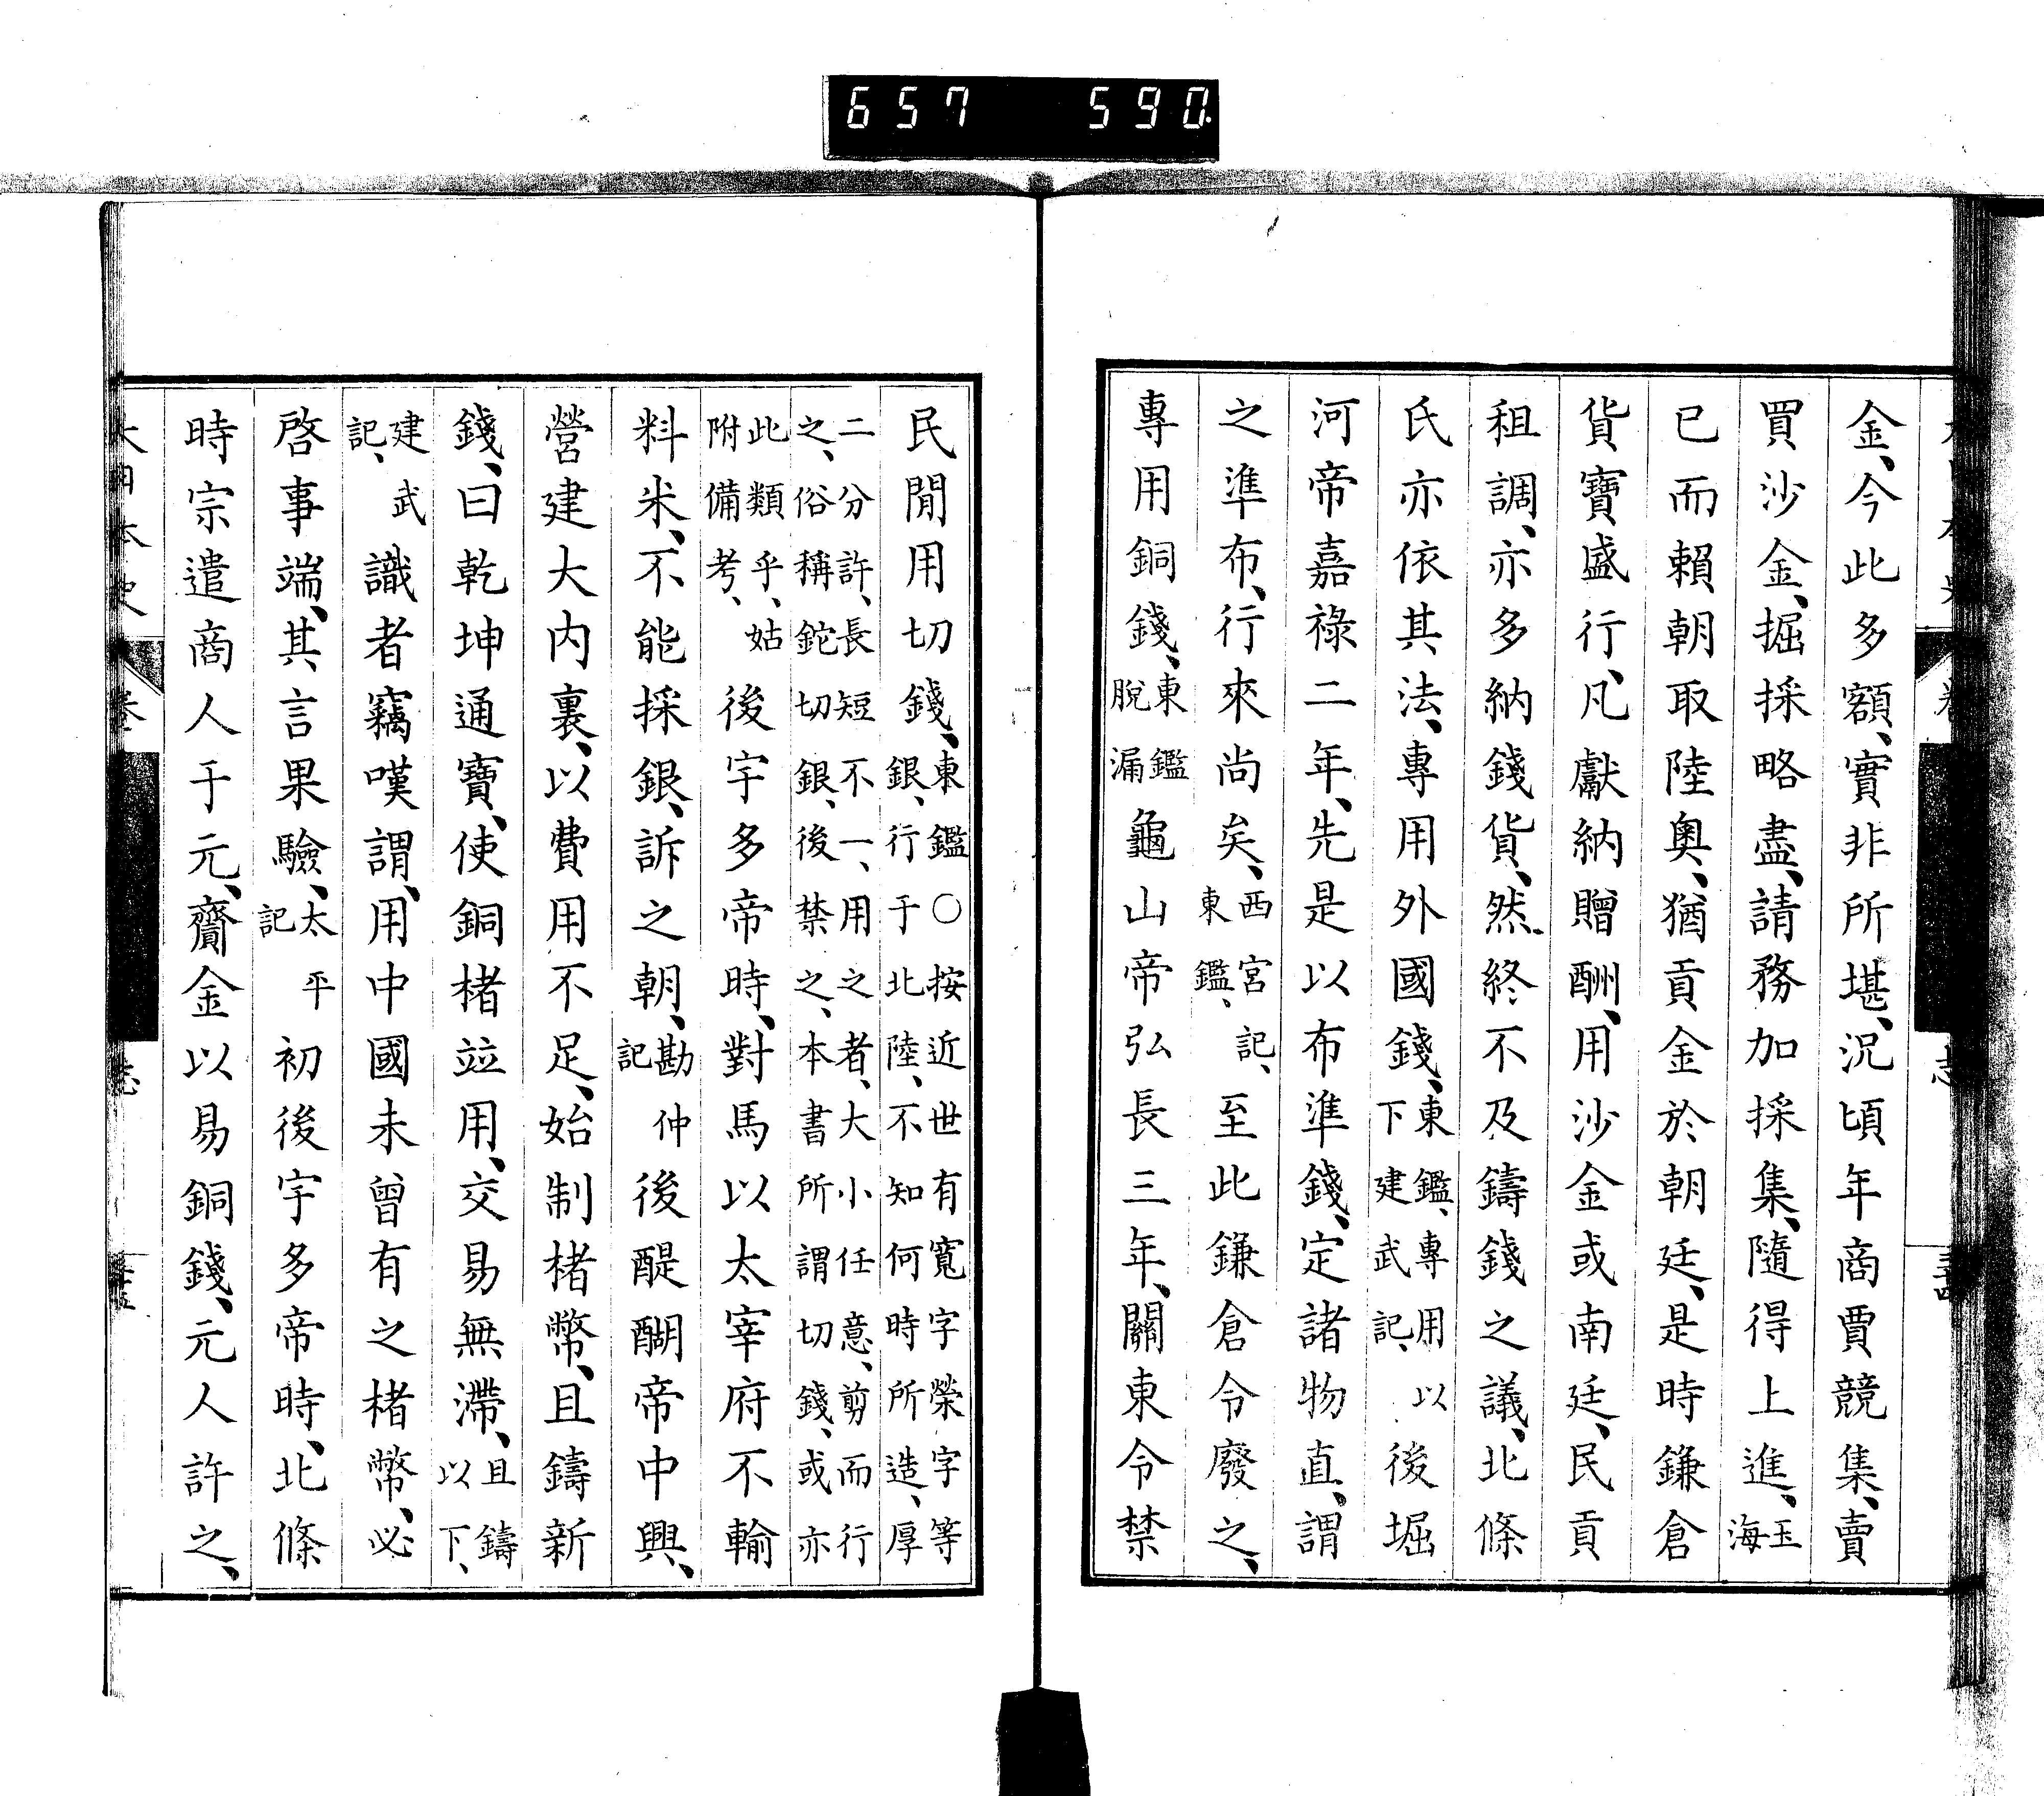 657 590
金、今此多額、實非所堪、況頃年商賈競集、賣
買沙金、掘採略盡、請務加採集、隨得上進、玉海
已而賴朝取陸奧、猶貢金於朝廷、是時鎌倉
貨寶盛行、凡獻納贈酬、用沙金或南廷、民貢
租調、亦多納錢貨、然終不及鑄錢之議、北條
氏亦依其法、專用外國錢、東鑑、專用以下建武記、後堀
河帝嘉祿二年、先是以布準錢、定諸物直、謂
之準布、行來尚矣、西宮記、東鑑、至此鎌倉令廢之、
專用銅錢、東鑑脫漏龜山帝弘長三年、關東令禁
民閒用切錢、東鑑○按近世有寬字榮字等銀、行于北陸、不知何時所造、厚
二分許、長短不一、用之者、大小任意、剪而行之、俗稱鉈切銀、後禁之、本書所謂切錢、或亦
此類乎、姑附備考、後宇多帝時、對馬以太宰府不輸
料米、不能採銀、訴之朝、勘仲記後醍醐帝中興、
營建大内裏、以費用不足、始制楮幣、且鑄新
錢、曰乾坤通寶、使銅楮竝用、交易無滯、且鑄以下、
建武記、識者竊嘆謂、用中國未曾有之楮幣、必
啓事端、其言果驗、太平記初後宇多帝時、北條
時宗遣商人于元、齎金以易銅錢、元人許之、
大日本史 卷 志